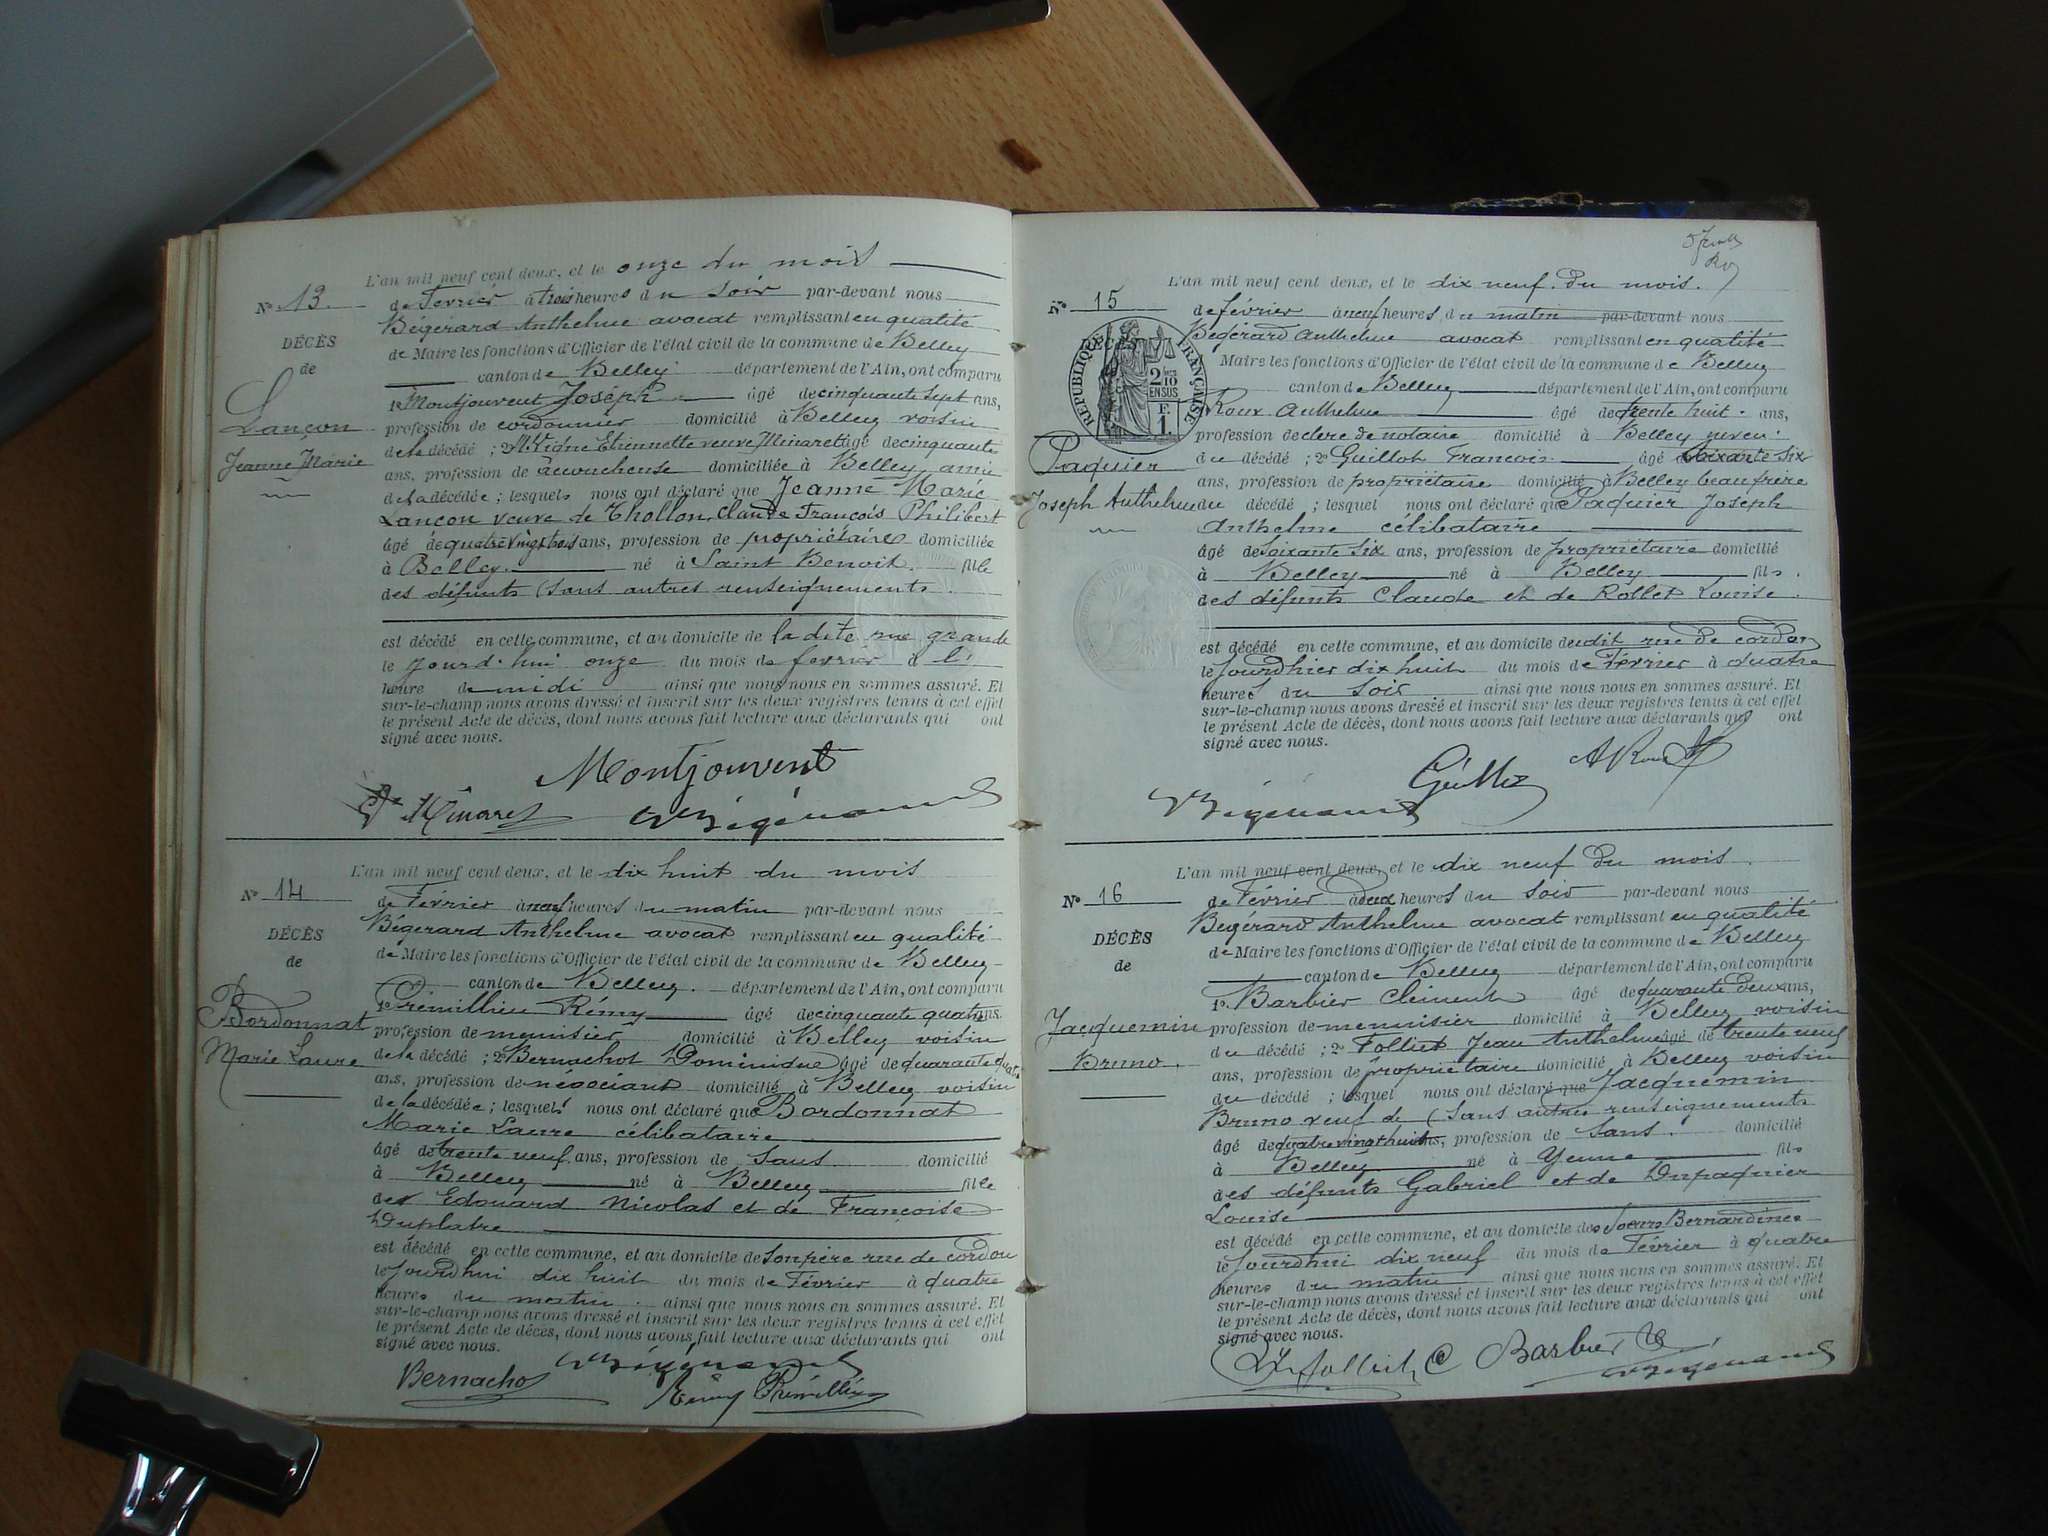 L'an mil neuf cent deux, et le onze du mois
No 13. de Fevrier à trois heures du soir par-devant nous
Bégérard Anthelme avocat remplissant en qualité
DÉCÈS de Maire les fonctions d'Officier de l'état civil de la commune de Belley
de canton de Belley département de l'Ain, ont comparu
1o Montjouvent Joseph âgé de cinquante sept ans,
Lançon profession de cordonnier domicilié à Belley voisin
de la décédé ; 2o Vigne Etiennette veuve Minaret âgé de cinquante
Jeanne Marie ans, profession de accoucheuse domiciliée à Belley amie
de la décédée ; lesquels nous ont déclaré que Jeanne Marie
Lançon veuve de Thollon Claude François Philibert
âgé de quatre vingt trois ans, profession de propriétaire domiciliée
à Belley. né à Saint Benoit. fille
des défunts (sans autres renseignements.
est décédé en cette commune, et au domicile de la dite rue grande
le jourd'hui onze du mois de fevrier à l'
heure de midi ainsi que nous nous en sommes assuré. Et
sur-le-champ nous avons dressé et inscrit sur les deux registres tenus à cet effet
le présent Acte de décès, dont nous avons fait lecture aux déclarants qui ont
signé avec nous.
Montjouvent
Minaret Bégérard
L'an mil neuf cent deux, et le dix huit du mois
No 14 de Février à neuf heures du matin par-devant nous
Bégérard Anthelme avocat remplissant en qualité
DÉCÈS de Maire les fonctions d'Officier de l'état civil de la commune de Belley
de canton de Belley. département de l'Ain, ont comparu
1o Prémillieu Rémy âgé de cinquante quatre ans.
Bordonnat profession de menuisier domicilié à Belley voisin
Marie Laure de la décédé ; 2o Bernachot Dominique âgé de quarante quatre
ans, profession de négociant domicilié à Belley voisin
de la décédée ; lesquels nous ont déclaré que Bordonnat
Marie Laure célibataire
âgé de trente neuf ans, profession de Sans domicilié
à Belley né à Belley fille
de Edouard Nicolas et de Françoise
Duplatre
est décédé en cette commune, et au domicile de son père rue de cordon
le Jourdhui dix huit du mois de Février à quatre
heures du matin. ainsi que nous nous en sommes assuré. Et
sur-le-champ nous avons dressé et inscrit sur les deux registres tenus à cet effet
le présent Acte de décès, dont nous avons fait lecture aux déclarants qui ont
signé avec nous.
Bernachot Bégérard
Rémy Prémillieu
L'an mil neuf cent deux, et le dix neuf. du mois.
No 15 de février à neuf heures du matin par-devant nous
Bégérard Anthelme avocat remplissant en qualité
DÉCÈS Maire les fonctions d'Officier de l'état civil de la commune de Belley
RÉPUBLIQUE FRANÇAISE
2/10 EN SUS
F. 1.
canton de Belley département de l'Ain, ont comparu
Roux Anthelme âgé de trente huit. ans,
profession de clerc de notaire domicilié à Belley neveu.
Paquier du décédé ; 2o Guillot François âgé de Soixante six
ans, profession de propriétaire domicilié à Belley beau frère
Joseph Anthelme du décédé ; lesquel nous ont déclaré que Paquier Joseph
Anthelme célibataire
âgé de Soixante Six ans, profession de propriétaire domicilié
à Belley né à Belley fils.
des défunts Claude et de Rollet Louise.
est décédé en cette commune, et au domicile de udit rue de cordon
le Jourdhier dix huit du mois de Février à quatre
heures du soir ainsi que nous nous en sommes assuré. Et
sur-le-champ nous avons dressé et inscrit sur les deux registres tenus à cet effet
le présent Acte de décès, dont nous avons fait lecture aux déclarants qui ont
signé avec nous.
Guillot A Roux
Bégérard
L'an mil neuf cent deux, et le dix neuf du mois.
No 16 de Février à deux heures du soir par-devant nous
Bégérard Anthelme avocat remplissant en qualité
DÉCÈS de Maire les fonctions d'Officier de l'état civil de la commune de Belley
de canton de Belley département de l'Ain, ont comparu
1o Barbier Clément âgé de quarante deux ans,
Jacquemin profession de menuisier domicilié à Belley voisin
du décédé ; 2o Folliet Jean Anthelme âgé de trente neuf
Bruno. ans, profession de propriétaire domicilié à Belley voisin
du décédé ; lesquel nous ont déclaré que Jacquemin
Bruno veuf de (Sans autres renseignements
âgé de quatre vingt huit ans, profession de Sans. domicilié
à Belley né à Yenne fils
des défunts Gabriel et de Dupaquier
Louise
est décédé en cette commune, et au domicile des Soeurs Bernardines
le Jourdhui dix neuf du mois de Février à quatre
heures du matin ainsi que nous nous en sommes assuré. Et
sur-le-champ nous avons dressé et inscrit sur les deux registres tenus à cet effet
le présent Acte de décès, dont nous avons fait lecture aux déclarants qui ont
signé avec nous.
Folliet C Barbier Bégérard